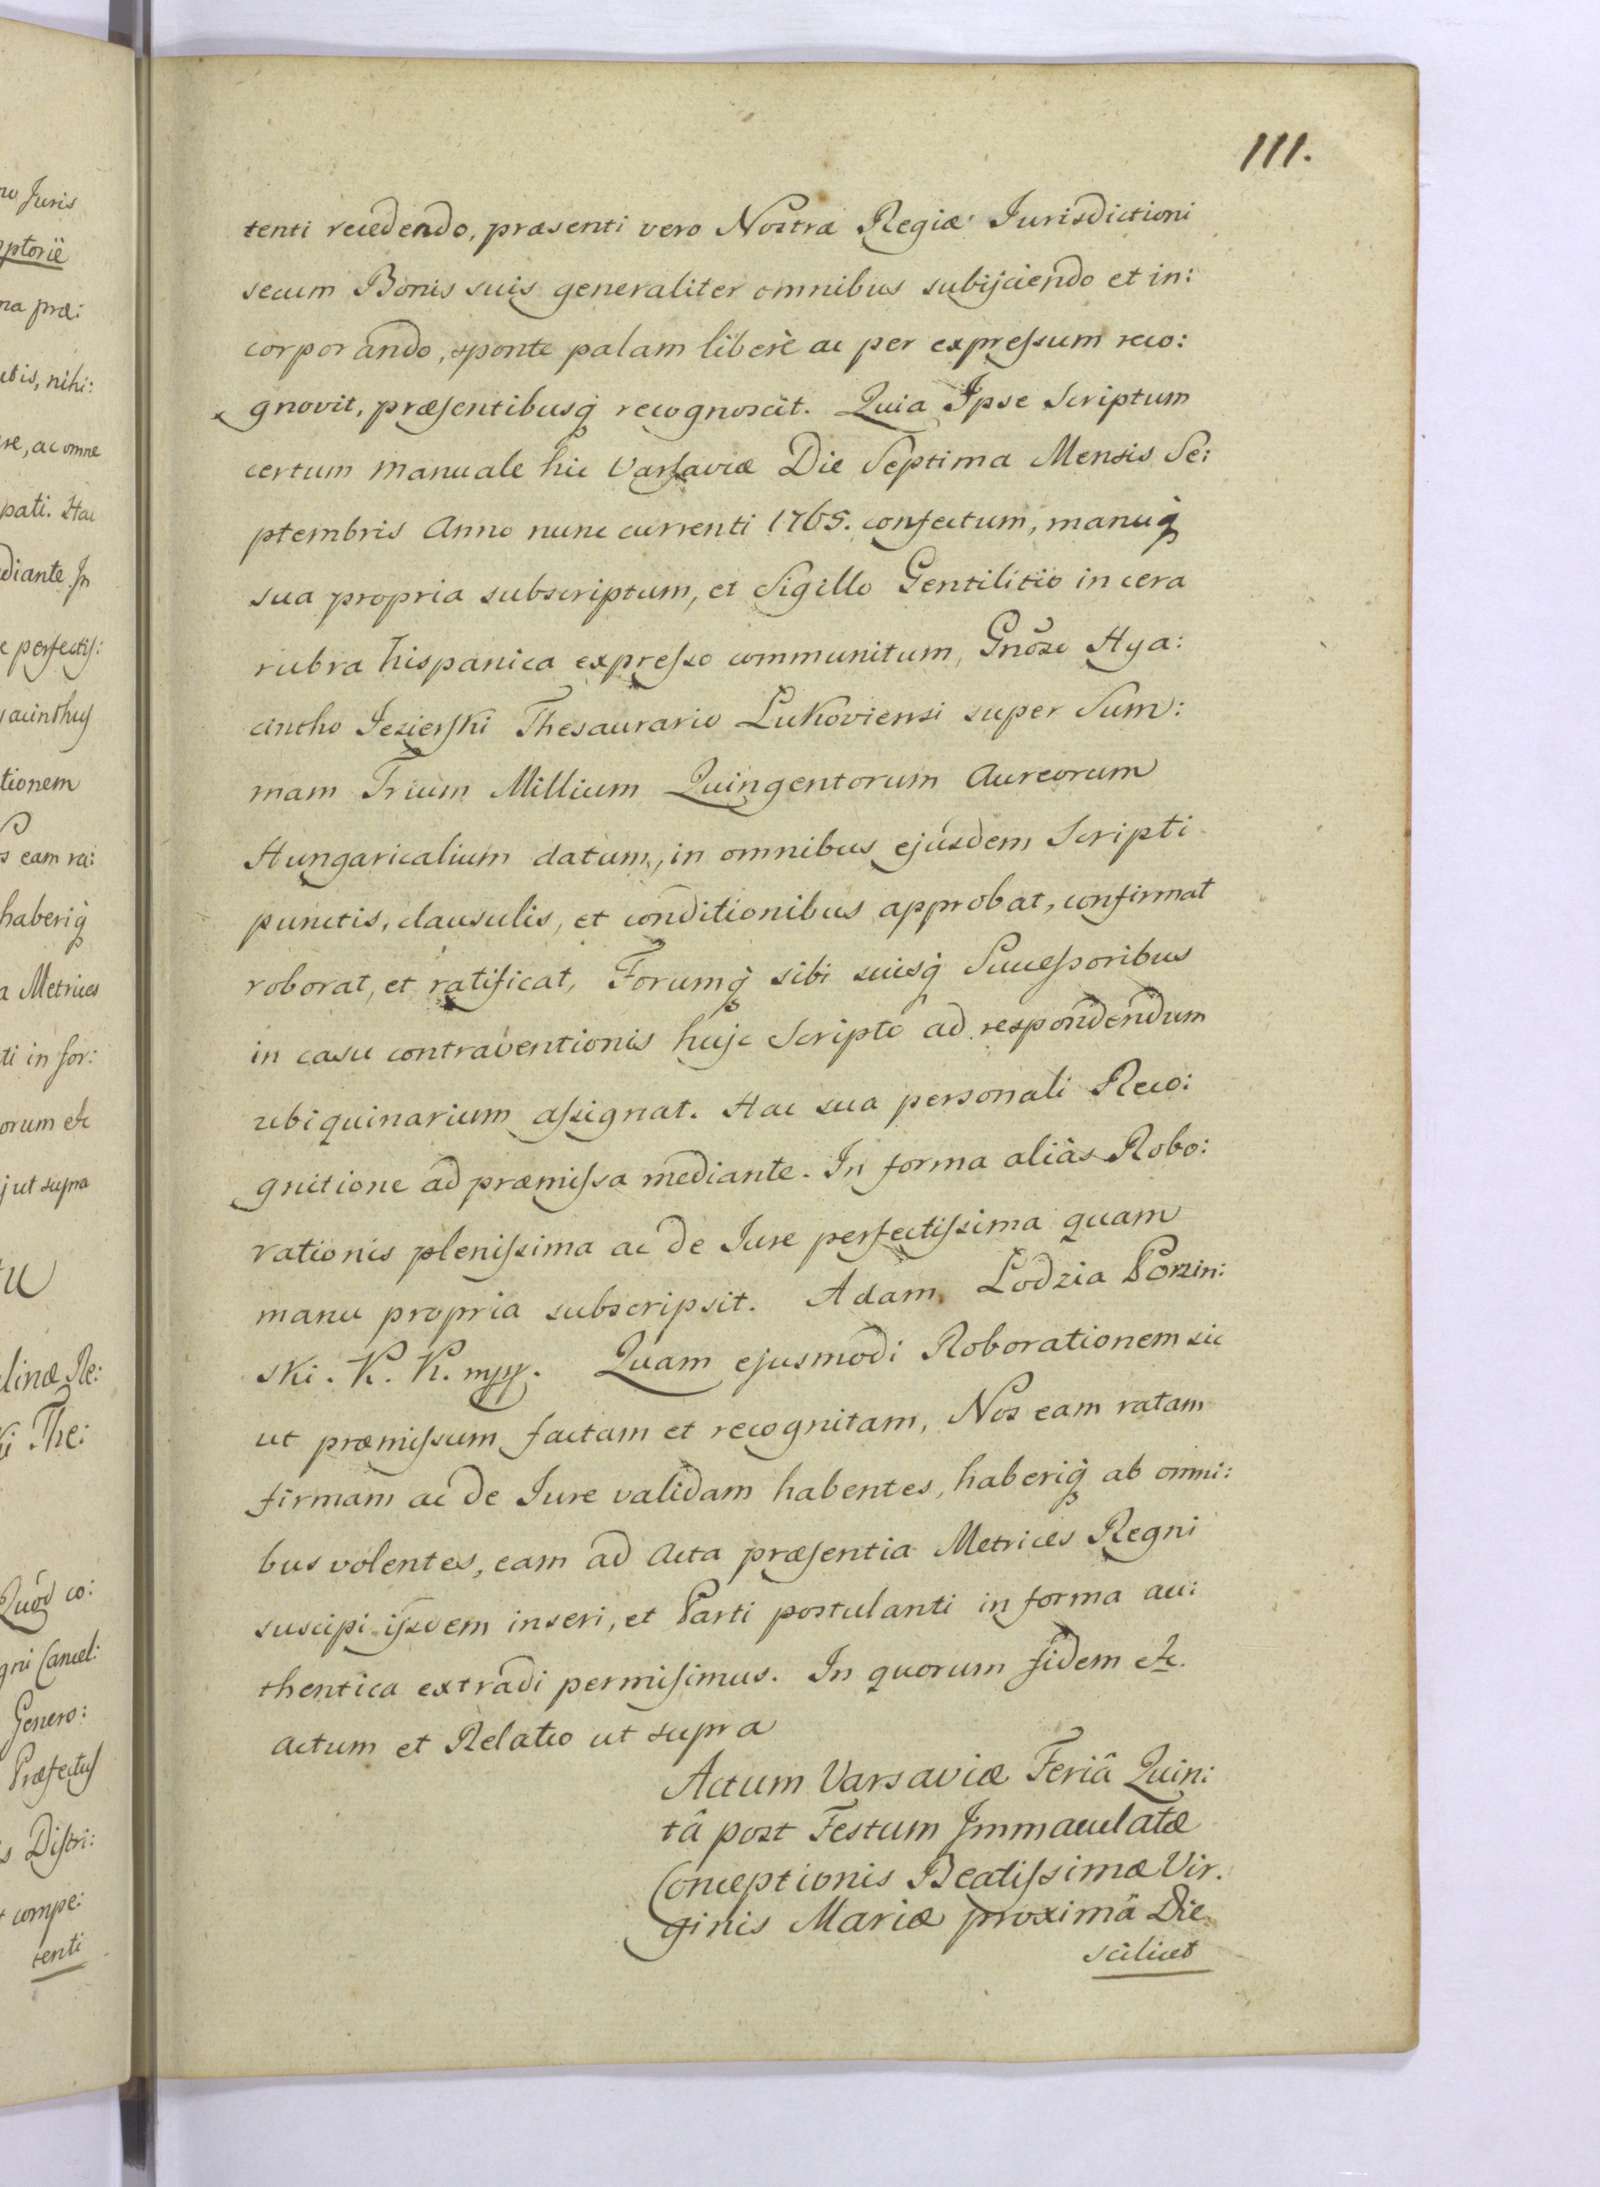 111.
tenti recedendo, præsenti vero Nostræ Regiæ Jurisdictioni
secum Bonis suis generaliter omnibus subijciendo et in:
corporando, sponte palam liberè ac per expreſsum reco:
gnovit, præſentibusq̃ recognoscit. Quia Ipse Scriptum
certum manuale hic Varſaviæ Die Septima Mensis Se:
ptembris Anno nunc currenti 1765. confectum, manuq̃
sua propria subscriptum, et Sigillo Gentilitio in cera
rubra hispanica expreſso communitum, Gnõso Hya:
cintho Jezierſki Thesaurario Lukoviensi super Sum:
mam Trium Millium Quingentorum Aureorum
Hungaricalium datum, in omnibus ejusdem Scripti
punctis, clausulis, et conditionibus approbat, confirmat
roborat, et ratificat, Forumq̃ sibi suisq̃ Succeſsoribus
in casu contraventionis huic Scripto ad respondendum
ubiquinarium aſsignat. Hac sua personali Reco:
gnitione ad præmiſsa mediante. In forma aliàs Robo:
rationis pleniſsima ac de Jure perfectiſsima quam
manu propria subscripsit. Adam Lodzia Ponin:
ski. K. K. mpp. Quam ejusmodi Roborationem sic
ut præmiſsum factam et recognitam, Nos eam ratam
firmam ac de Jure validam habentes, haberiq̃ ab omni:
bus volentes, eam ad Acta præſentia Metrices Regni
suscipi ijsdem inseri, et Parti postulanti in forma au:
thentica extradi permiſimus. In quorum fidem etc.
Actum et Relatio ut supra
Actum Varsaviæ Feriâ Quin:
tâ post Festum Immaculatæ
Conceptionis Beatiſsimæ Vir.
ginis Mariæ proximâ Die
scilicet